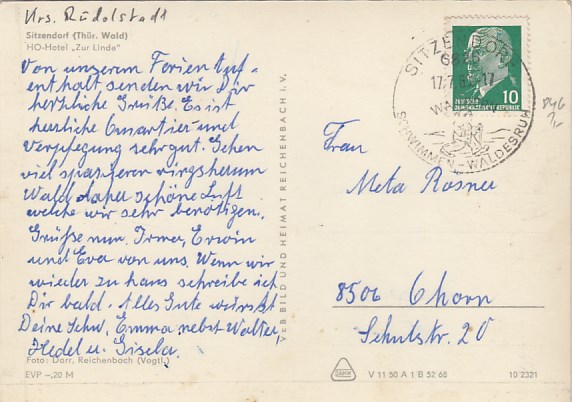 Krs. Rudolstadt
Sitzendorf (Thür. Wald)
HO-Hotel „Zur Linde"
Von unserem Ferien Auf-
enthalt senden wir Dir
herzliche Grüße. Es ist
herrliche Quartier und
Verpflegung sehr gut. Gehen
viel spazieren ringsherum
Wald daher schöne Luft
welche wir sehr benötigen.
Grüße nun Irma, Erwin
und Eva von uns. Wenn wir
wieder zu haus schreibe ich
Dir bald. Alles Gute wünscht
Deine Schw. Emma nebst Walter,
Hedel u. Gisela.
Foto: Darr, Reichenbach (Vogtl.)
EVP –,20 M
VEB BILD UND HEIMAT REICHENBACH i. V.
SITZENDORF
17.7.
-17
SCHWIMMEN - WALDESRUH
10
DEUTSCHE
DEMOKRATISCHE REPUBLIK
Frau
Meta Rosner
8506 Ohorn
Schulstr. 20
V 11 50 A 1 B 52 68
10 2321